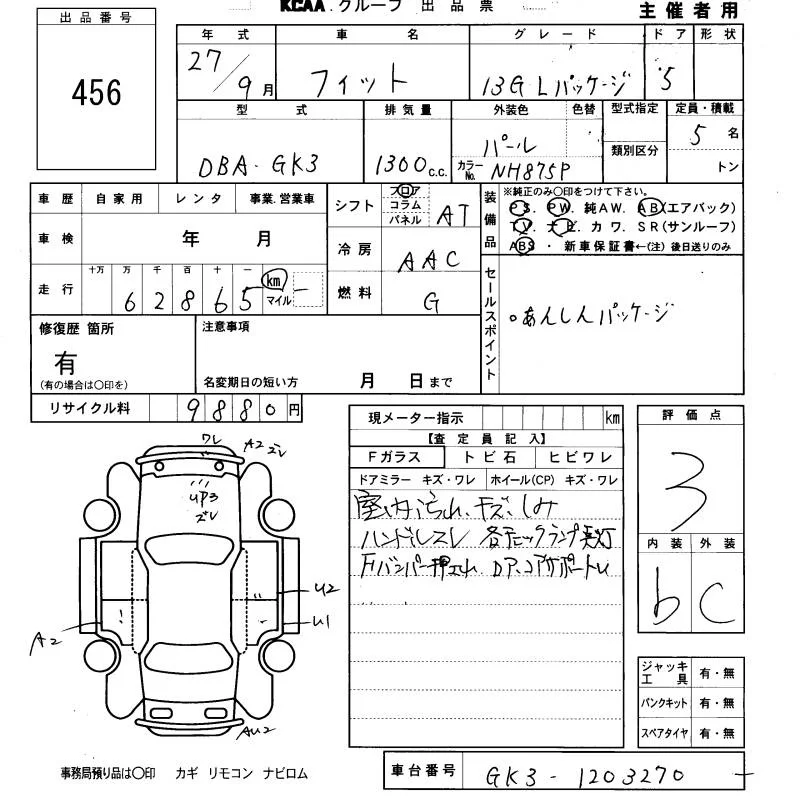 KCAA. グループ 出品票 主催者用
出品番号
456
年式 車名 グレード ドア 形状
27/9月 フィット 13G Lパッケージ 5
型式 排気量 外装色 色替 型式指定 定員・積載
DBA-GK3 1300c.c. パール 5名
カラーNo. NH875P 類別区分 トン
車歴 自家用 レンタ 事業.営業車
車検 年 月
走行 十万 万 千 百 十 一
62865 km マイル
シフト フロア コラム パネル AT
冷房 AAC
燃料 G
装備品
※純正のみ〇印をつけて下さい。
PS. PW. 純AW. AB(エアバック)
TV. ナビ. カワ. SR(サンルーフ)
ABS・新車保証書←(注) 後日送りのみ
セールスポイント
。あんしんパッケージ
修復歴 箇所
有
(有の場合は〇印を)
注意事項
名変期日の短い方 月 日まで
リサイクル料 9880円
現メーター指示 km
【査定員記入】
Fガラス トビ石 ヒビワレ
ドアミラー キズ・ワレ ホイール(CP) キズ・ワレ
室内汚れ、キズ、しみ
ハンドルスレ 各チェックランプ点灯
Fバンパー押エ
評価点
3
内装 外装
b C
ワレ
A2
ズレ
UP3
ズレ
U2
U1
A2
AU2
ジャッキ工具 有・無
パンクキット 有・無
スペアタイヤ 有・無
事務局預り品は〇印 カギ リモコン ナビロム
車台番号 GK3-1203270